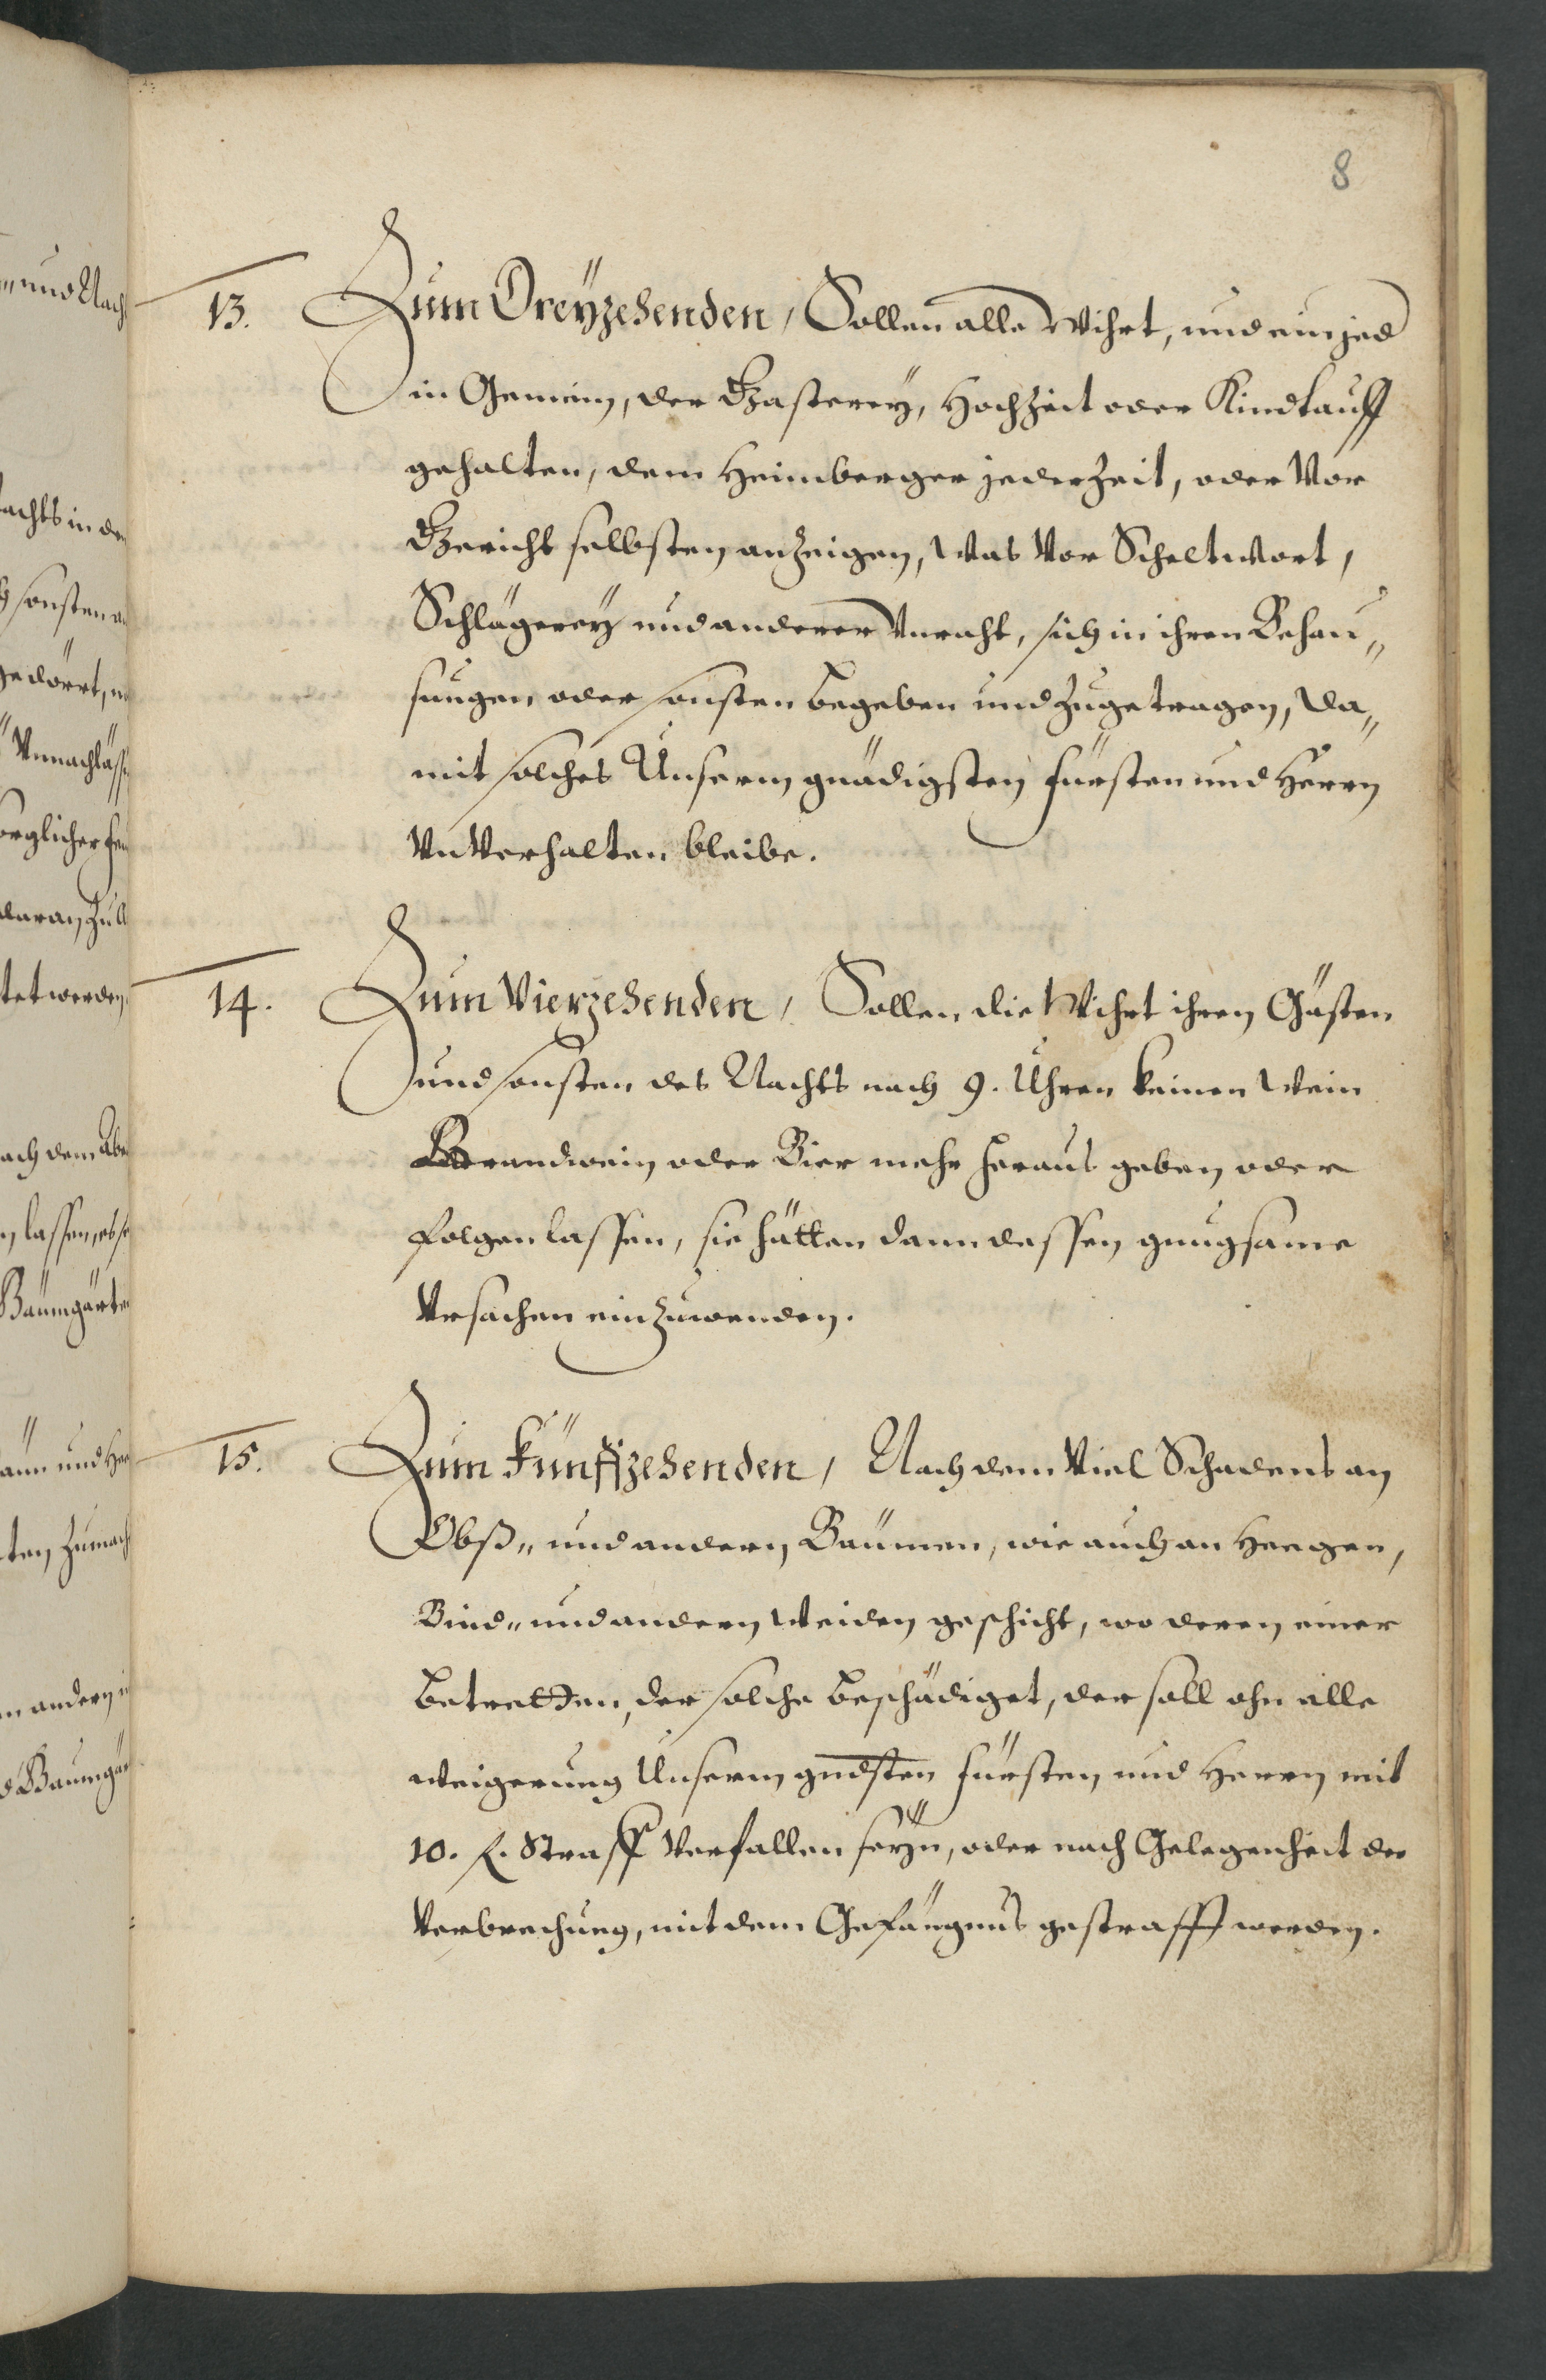 8
13. Zum Dreÿzehenden, Sollen alle Wihrt, und ein jed
in Gemein, der Gasterey, Hochzeit oder Kindtauff
gehalten, dem Heimberger jederzeit, oder Vor
Gericht selbsten anzeigen, was Vor Scheltwort,
Schlägereÿ und anderer Vnraht, sich in ihren Behau„
sungen oder sonsten begeben und zugetragen, da„
mit solches Unserm gnädigsten fürsten und Herrn
VnVerhalten bleibe.
14. Zum Vierzehenden, Sollen die Wihrt ihren Gästen
und sonsten des Nachts nach 9. Uhren keinen Wein
Brandwein oder Bier mehr heraus geben oder
folgen lassen, sie hätten dann dessen gnugsame
Vrsachen einzuwenden.
15. Zum fünffzehenden, Nach dem Viel Schadens an
Obß„ und andern Bäumen, wie auch an Heegen,
Bind„ und andern Weiden geschicht, wo deren einer
betretten, der solche beschädiget, der soll ohn alle
weigerung Unserm gndsten fürsten und Herrn mit
10. f. Straff Verfallen seÿn, oder nach Gelegenheit der
Verbrechung, mit dem Gefängnus gestrafft werden.